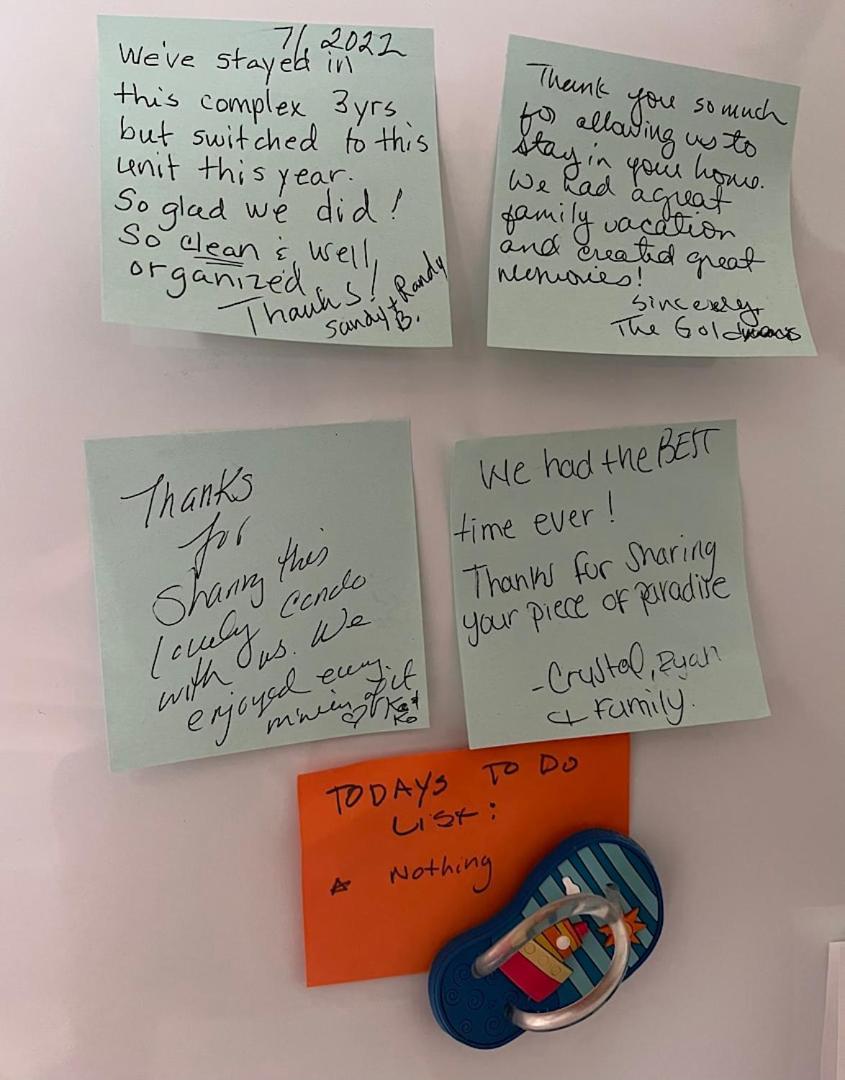 7/2022
We've stayed in
this complex 3yrs
but switched to this
unit this year.
So glad we did!
So clean & well
organized
Thanks!
Sandy + Randy
B.
Thank you so much
for allowing us to
stay in your home.
We had a great
family vacation
and created great
memories!
Sincerely,
The
Thanks
for
Sharing this
lovely condo
with us. We
enjoyed every
of it
We had the BEST
time ever!
Thanks for sharing
your piece of paradise
-Crystal, Ryan
& Family.
TODAYS TO DO
LIST:
Nothing